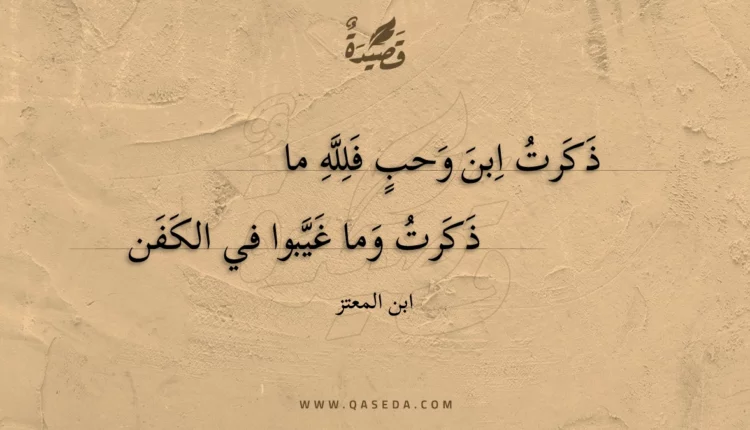 قَصِيْدَةٌ
ذَكَرتُ اِبنَ وَحبٍ فَلِلَّهِ ما
ذَكَرتُ وَما غَيَّبوا في الكَفَن
ابن المعتز
WWW.QASEDA.COM